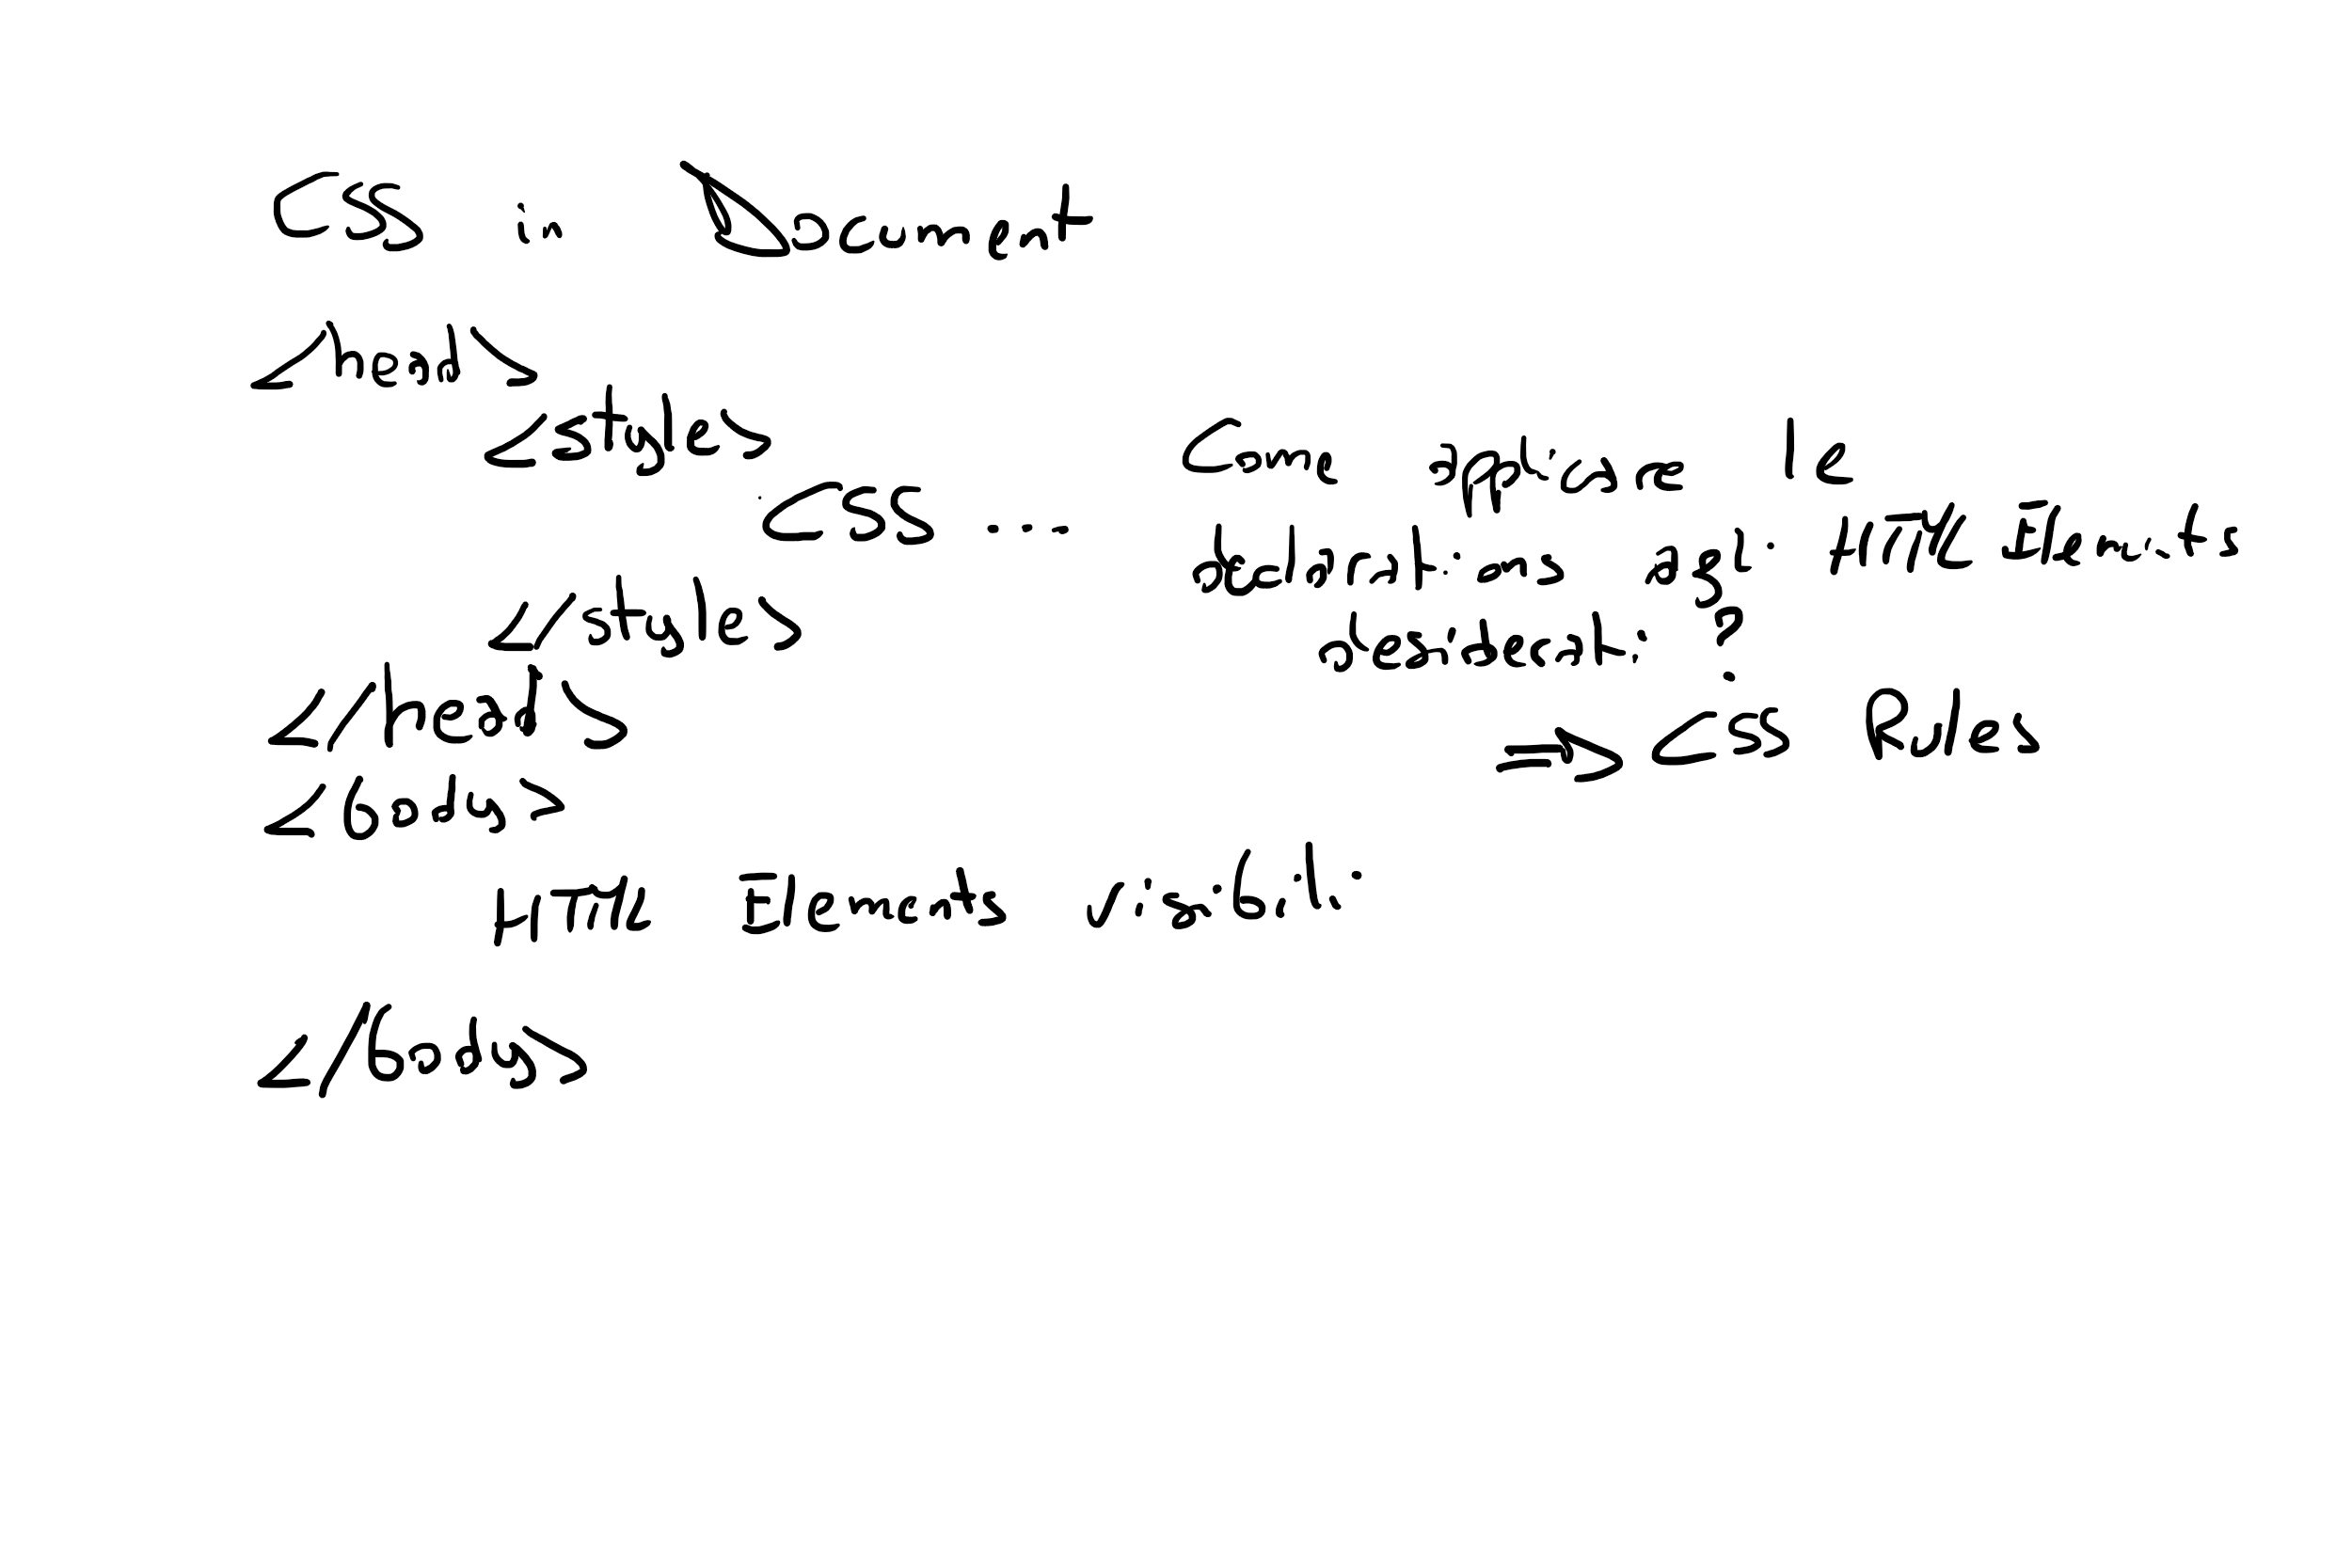 CSS in Document
<head>
<style>
CSS ....
</style>
</head>
<body>
HTML Elements visibili
</body>
Come applicare le
declarations agli HTML Elements
desiderati ?
=> CSS Rules